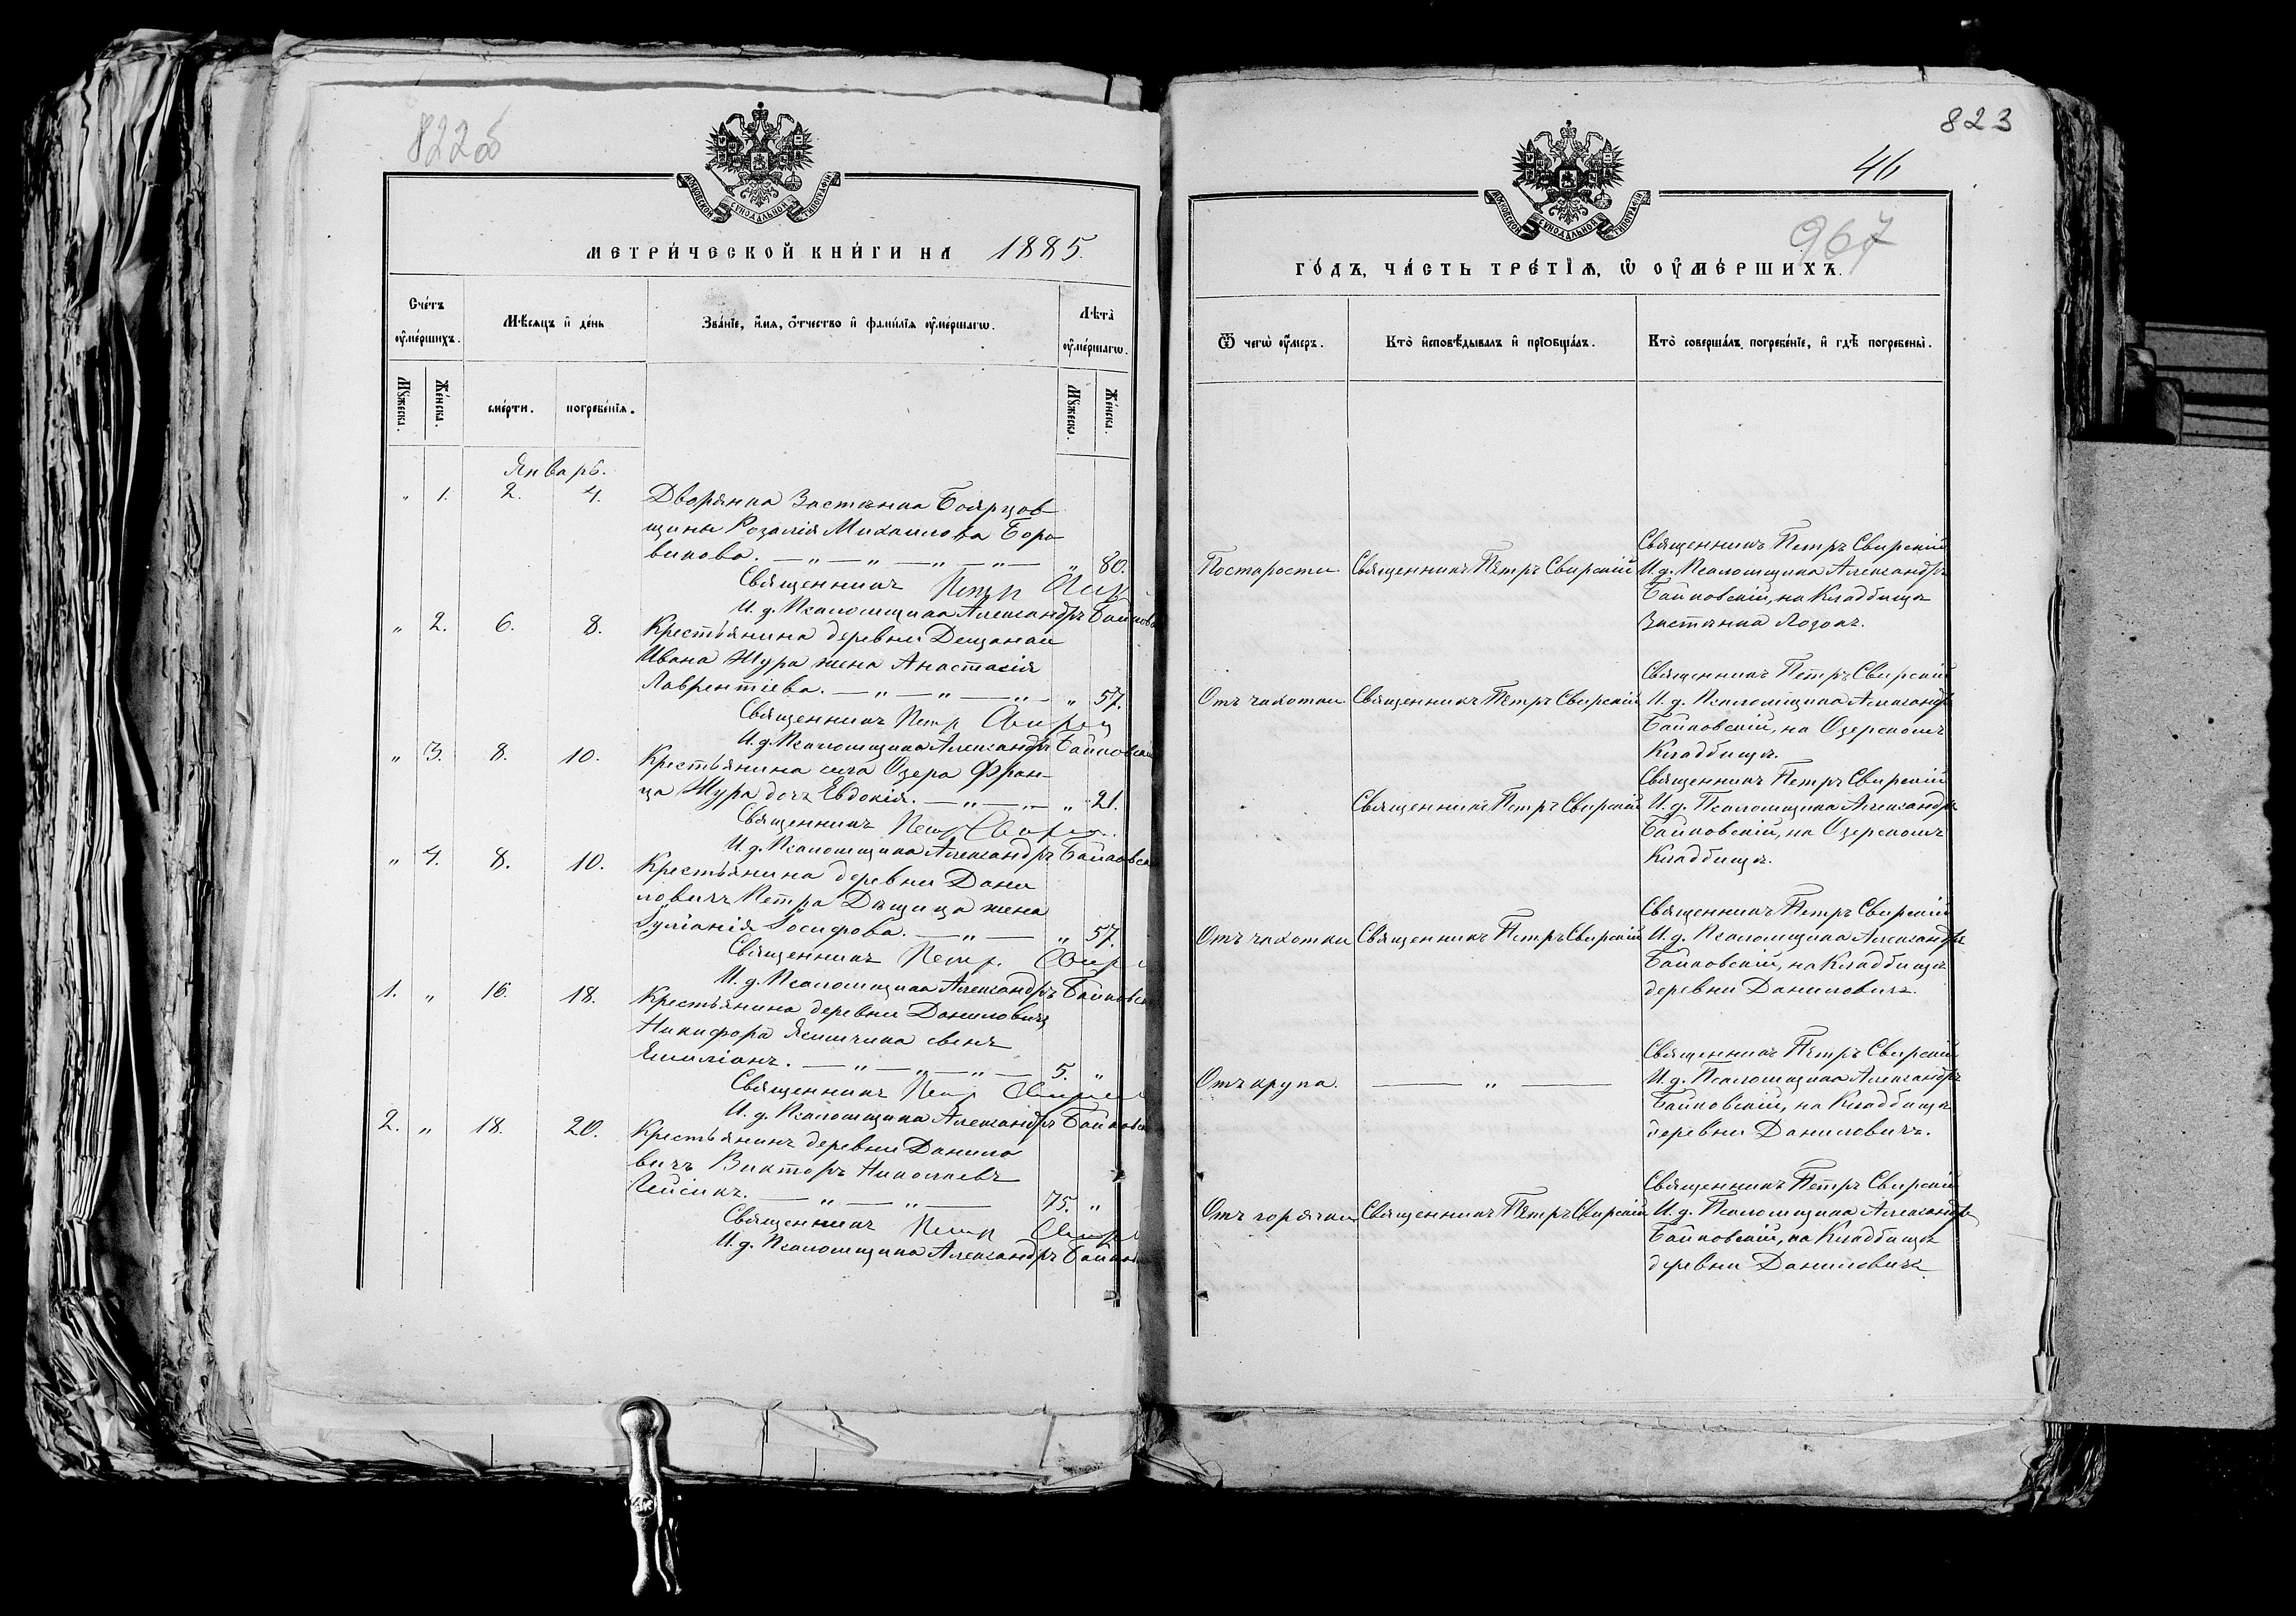 822об
МОСКОВСКОЙ СѴНОДАЛЬНОЙ ТИПОГРАФІИ
МЕТРИ́ЧЕСКОЙ КНИ́ГИ НА 1885.
Сче́тъ оу҆ме́ршихъ.
Мѣ́сяцъ и҆ де́нь
Зва́нїе, и҆́мя, ѻ҆́тчество и҆ фами́лїя оу҆ме́ршагѡ.
Лѣ́та оу҆ме́ршагѡ.
Мꙋ́жеска. Же́нска. сме́рти. погребе́нїя. Мꙋ́жеска. Же́нска.
Январь.
„ 1. 2. 4. Дворянка Застѣнка Боярцов-
щины Розалія Михаилова Боро
викова. — „ — „ — „ — „ — „ 80.
Священникъ Петръ Свир
И. д. Псаломщика Александръ Байков
„ 2. 6. 8. Крестьянина деревни Дещанки
Ивана Жура жена Анастасія
Лаврентіева. — „ — „ — „ — „ 57.
Священникъ Петр Свирск
И. д. Псаломщика Александръ Байковскі
„ 3. 8. 10. Крестьянина села Озера Фран-
ца Жура дочь Евдокія. — „ — „ — „ 21.
Священникъ Петр Свирск
И. д. Псаломщика Александръ Байковск
„ 4. 8. 10. Крестьянина деревни Дани
ловичъ Петра Дѣщица жена
Іуліанія Іосифова. — „ — „ 57.
Священникъ Петр. Свирс
И. д. Псаломщика Александръ Байковск
1. „ 16. 18. Крестьянина деревни Даниловичъ
Никифора Ясючика сынъ
Емиліанъ. — „ — „ — „ — 5. „
Священникъ Петр Свирск
И. д. Псаломщика Александръ Байковск
2. „ 18. 20. Крестьянинъ деревни Данило
вичъ Викторъ Николаевъ
Чейсикъ. — „ — „ — 75. „
Священникъ Петр Свирс
И. д. Псаломщика Александръ Байков
823
46
967
МОСКОВСКОЙ СѴНОДАЛЬНОЙ ТИПОГРАФІИ
ГО́ДЪ, ЧА́СТЬ ТРЕ́ТЇѦ, Ѡ҆ ОУ҆МЕ́РШИХЪ.
Ѿ чегѡ̀ оу҆́меръ.
Кто̀ и҆сповѣ́дывалъ и҆ прїѡбща́лъ.
Кто̀ соверша́лъ погребе́нїе, и҆ гдѣ̀ погребены̀.
Священникъ Петръ Свирскій
По старости. Священникъ Петръ Свирскій И. д. Псаломщика Александръ
Байковскій, на Кладбищѣ
Застѣнка Лозокъ.
Священникъ Петръ Свирскій
Отъ чахотки. Священникъ Петръ Свирскій И. д. Псаломщика Александръ
Байковскій, на Озерскомъ
Кладбищѣ.
Священникъ Петръ Свирскій
Священникъ Петръ Свирскій И. д. Псаломщика Александръ
Байковскій, на Озерскомъ
Кладбищѣ.
Священникъ Петръ Свирскій
Отъ чахотки Священникъ Петръ Свирскій И. д. Псаломщика Александръ
Байковскій, на Кладбищѣ
деревни Даниловичъ.
Священникъ Петръ Свирскій
Отъ крупа. — „ — И. д. Псаломщика Александръ
Байковскій, на Кладбищѣ
деревни Даниловичъ.
Священникъ Петръ Свирскій
Отъ горячки Священникъ Петръ Свирскій И. д. Псаломщика Александръ
Байковскій, на Кладбищѣ
деревни Даниловичъ